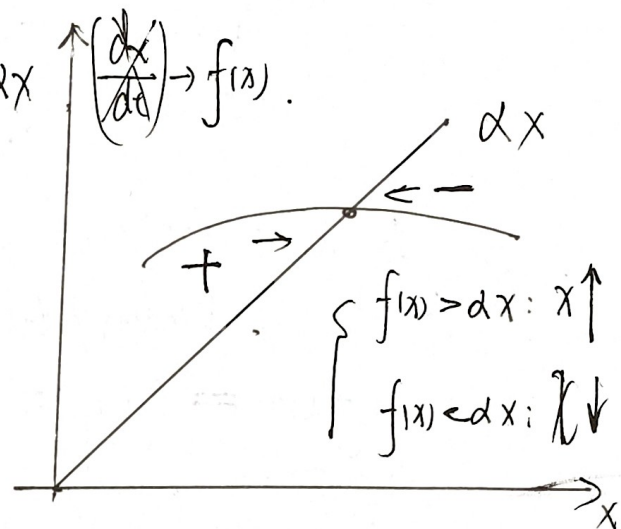 αx
(dx/dt) → f(x).
αx
← −
+ →
f(x) > αx : x ↑
f(x) < αx : x ↓
x